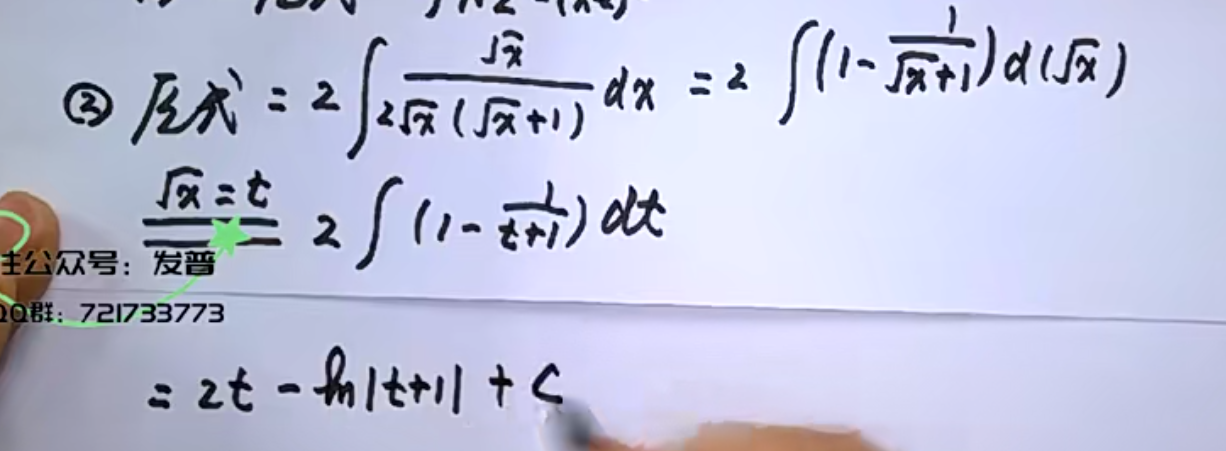 ② 原式 = 2∫ √x / 2√x(√x+1) dx = 2∫(1 - 1/√x+1) d(√x)
√x = t 2∫(1 - 1/t+1) dt
主公众号：发普
QQ群：721733773
= 2t - ln|t+1| + C